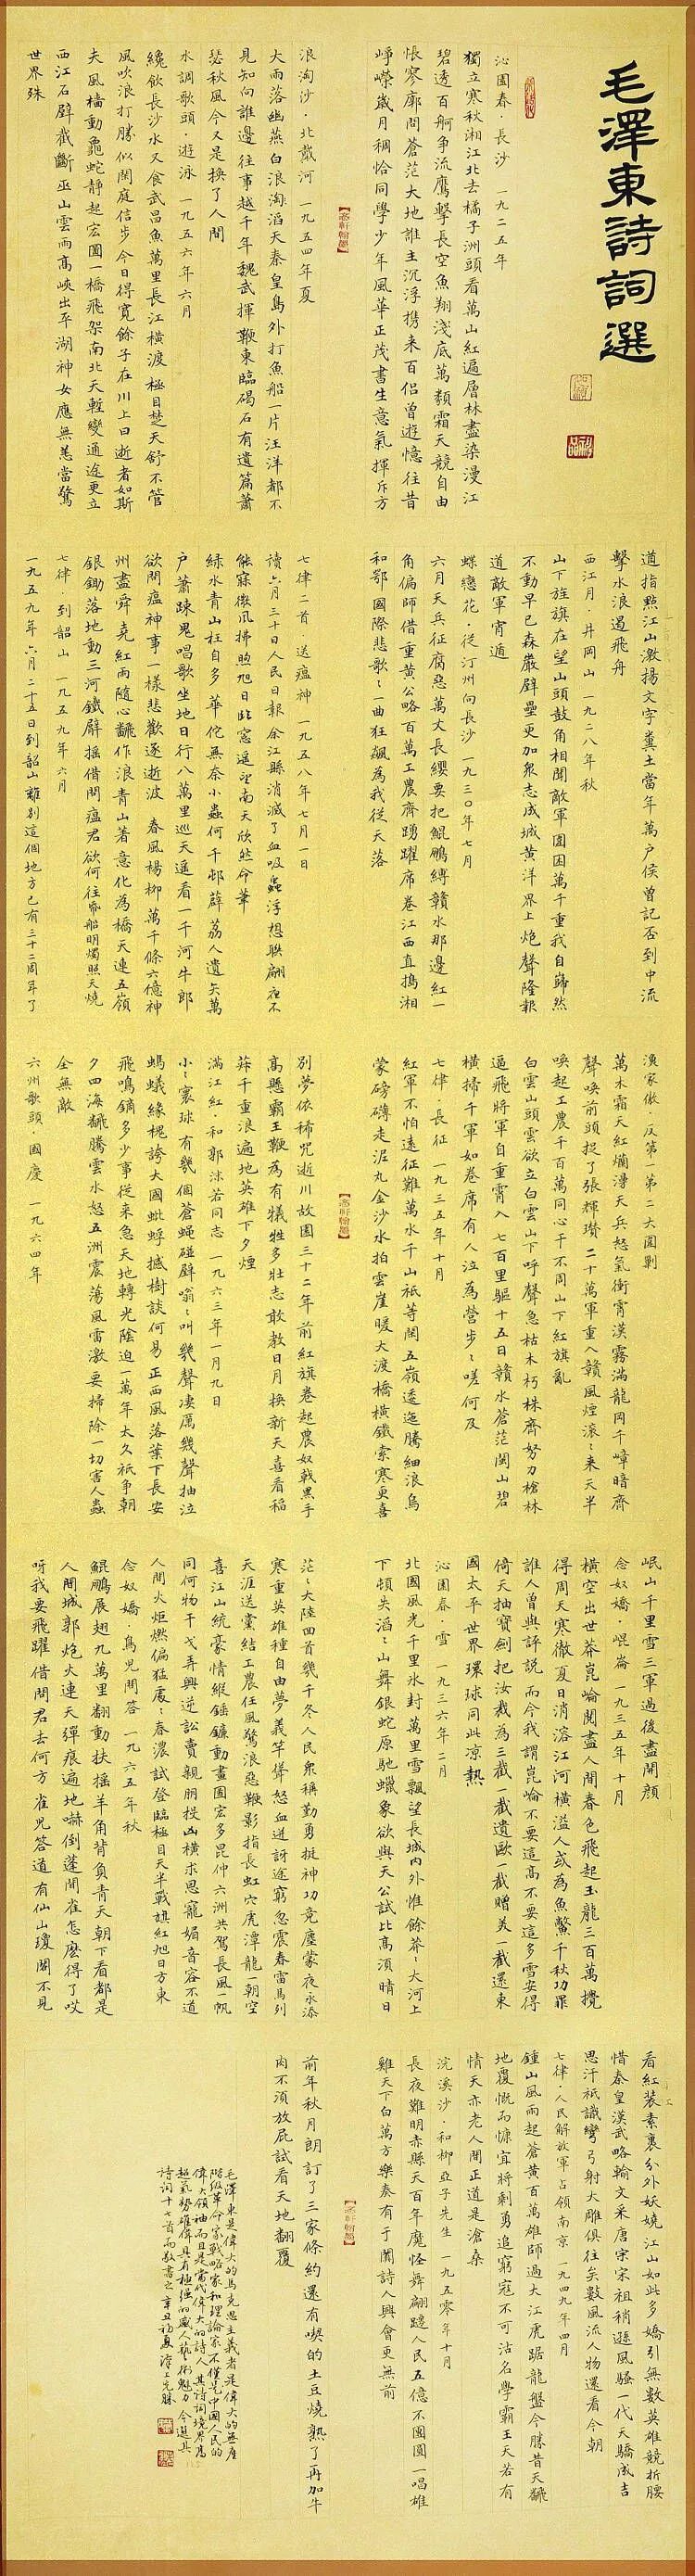 毛澤東詩詞選
沁園春·長沙 一九二五年
獨立寒秋湘江北去橘子洲頭看萬山紅遍層林盡染漫江
碧透百舸争流鷹擊長空魚翔淺底萬類霜天競自由
悵寥廓問蒼茫大地誰主沉浮携来百侣曾遊憶往昔
崢嶸歲月稠恰同學少年風華正茂書生意氣揮斥方
遒指點江山激揚文字糞土當年萬户侯曾記否到中流
擊水浪遏飛舟
西江月·井岡山 一九二八年秋
山下旌旗在望山頭鼓角相聞敵軍圍困萬千重我自巋然
不動早已森嚴壁壘更加衆志成城黄洋界上炮聲隆報
道敵軍宵遁
蝶戀花·從汀州向長沙 一九三〇年七月
六月天兵征腐惡萬丈長纓要把鯤鵬縛贛水那邊紅一
角偏師借重黄公略百萬工農齊踴躍席卷江西直搗湘
和鄂國際悲歌歌一曲狂飆為我從天落
漁家傲·反第一第二大圍剿
萬木霜天紅爛漫天兵怒氣衝霄漢霧滿龍岡千嶂暗齊
聲唤前頭捉了張輝瓚二十萬軍重入贛風煙滾滾来天半
唤起工農千百萬同心干不周山下紅旗亂
白雲山頭雲欲立白雲山下呼聲急枯木朽株齊努力槍林
逼飛將軍自重霄入 七百里驅十五日贛水蒼茫閩山碧
橫掃千軍如卷席有人泣為營步步嗟何及
七律·長征 一九三五年十月
紅軍不怕遠征難萬水千山衹等閑五嶺逶迤騰細浪烏
蒙磅礴走泥丸金沙水拍雲崖暖大渡橋橫鐵索寒更喜
岷山千里雪三軍過後盡開顔
念奴嬌·崐崙 一九三五年十月
橫空出世莽崑崙閱盡人間春色飛起玉龍三百萬攪
得周天寒徹夏日消溶江河橫溢人或為魚鱉千秋功罪
誰人曾與評説 而今我謂崑崙不要這高不要這多雪安得
倚天抽寶劍把汝裁為三截一截遺歐一截贈美一截還東
國太平世界環球同此凉熱
沁園春·雪 一九三六年二月
北國風光千里冰封萬里雪飄望長城内外惟餘莽莽大河上
下頓失滔滔山舞銀蛇原馳蠟象欲與天公試比高須晴日
看紅装素裹分外妖嬈江山如此多嬌引無數英雄競折腰
惜秦皇漢武略輸文采唐宗宋祖稍遜風騷一代天驕成吉
思汗衹識彎弓射大雕俱往矣數風流人物還看今朝
七律·人民解放軍占領南京 一九四九年四月
鍾山風雨起蒼黄百萬雄師過大江虎踞龍盤今勝昔天翻
地覆慨而慷宜將剩勇追窮寇不可沽名學霸王天若有
情天亦老人間正道是滄桑
浣溪沙·和柳亞子先生 一九五零年十月
長夜難明赤縣天百年魔怪舞翩躚人民五億不團圓一唱雄
雞天下白萬方樂奏有于闐詩人興會更無前
浪淘沙·北戴河 一九五四年夏
大雨落幽燕白浪滔天秦皇島外打魚船一片汪洋都不
見知向誰邊往事越千年魏武揮鞭東臨碣石有遺篇蕭
瑟秋風今又是换了人間
水調歌頭·遊泳 一九五六年六月
纔飲長沙水又食武昌魚萬里長江橫渡極目楚天舒不管
風吹浪打勝似閑庭信步今日得寬餘子在川上曰逝者如斯
夫風檣動龜蛇靜起宏圖一橋飛架南北天塹變通途更立
西江石壁截斷巫山雲雨高峽出平湖神女應無恙當驚
世界殊
七律二首·送瘟神 一九五八年七月一日
讀六月三十日人民日報余江縣消滅了血吸蟲浮想聯翩夜不
能寐微風拂煦旭日臨窗遥望南天欣然命筆
緑水青山枉自多華佗無奈小蟲何千邨薜荔人遺矢萬
户蕭疎鬼唱歌坐地日行八萬里巡天遥看一千河牛郎
欲問瘟神事一樣悲歡逐逝波 春風楊柳萬千條六億神
州盡舜堯紅雨隨心翻作浪青山著意化為橋天連五嶺
銀鋤落地動三河鐵臂摇借問瘟君欲何往紙船明燭照天燒
七律·到韶山 一九五九年六月
一九五九年六月二十五日到韶山離别這個地方已有三十二周年了
别夢依稀咒逝川故園三十二年前紅旗卷起農奴戟黑手
高懸霸王鞭為有犧牲多壯志敢教日月换新天喜看稻
菽千重浪遍地英雄下夕煙
滿江紅·和郭沫若同志 一九六三年一月九日
小小寰球有幾個蒼蠅碰壁嗡嗡叫幾聲凄厲幾聲抽泣
螞蟻緣槐誇大國蚍蜉撼樹談何易正西風落葉下長安
飛鳴鏑多少事從来急天地轉光陰迫一萬年太久衹争朝
夕四海翻騰雲水怒五洲震蕩風雷激要掃除一切害人蟲
全無敵
六州歌頭·國慶 一九六四年
茫茫大陸回首幾千冬人民衆稱勤勇挺神功竟塵蒙夜永添
寒重英雄種自由夢義竿聳怒血迸訝途窮忽震春雷馬列
天涯送黨結工農任風驚浪惡鞭影指長虹穴虎潭龍一朝空
喜江山統豪情縱錘鐮動畫圖宏多昆仲六洲共駕長風一帆
同何物干戈弄興逆訟賣親朋投凶橫求恩寵媚音容不道
人間火炬燃偏猛處處春濃試登臨極目天半戰旗紅旭日方東
念奴嬌·鳥兒問答 一九六五年秋
鯤鵬展翅九萬里翻動扶摇羊角背負青天朝下看都是
人間城郭炮火連天彈痕遍地嚇倒蓬間雀怎麽得了哎
呀我要飛躍借問君去何方雀兒答道有仙山瓊閣不見
前年秋月朗訂了三家條約還有喫的土豆燒熟了再加牛
肉不須放屁試看天地翻覆
毛澤東是偉大的馬克思主義者是偉大的無産
階級革命家戰略家和理論家不僅是中國人民的
偉大領袖而且是當代偉大的詩人其詩詞境界高
超氣勢雄偉具有極强的感人藝術魅力今選其
詩詞十七首而敬書之辛丑初夏